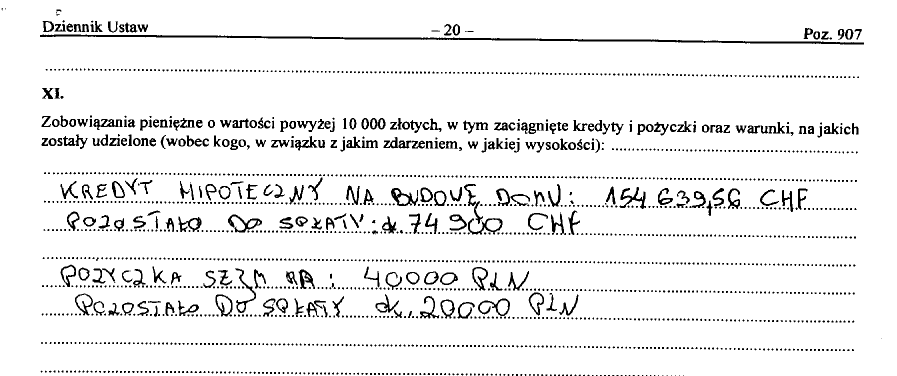 Dziennik Ustaw – 20 – Poz. 907
XI.
Zobowiązania pieniężne o wartości powyżej 10 000 złotych, w tym zaciągnięte kredyty i pożyczki oraz warunki, na jakich
zostały udzielone (wobec kogo, w związku z jakim zdarzeniem, w jakiej wysokości):
KREDYT HIPOTECZNY NA BUDOWĘ DOMU: 154 639,56 CHF
POZOSTAŁO DO SPŁATY: ok. 74 900 CHF
POŻYCZKA : 40000 PLN
POZOSTAŁO DO SPŁATY ok. 20000 PLN